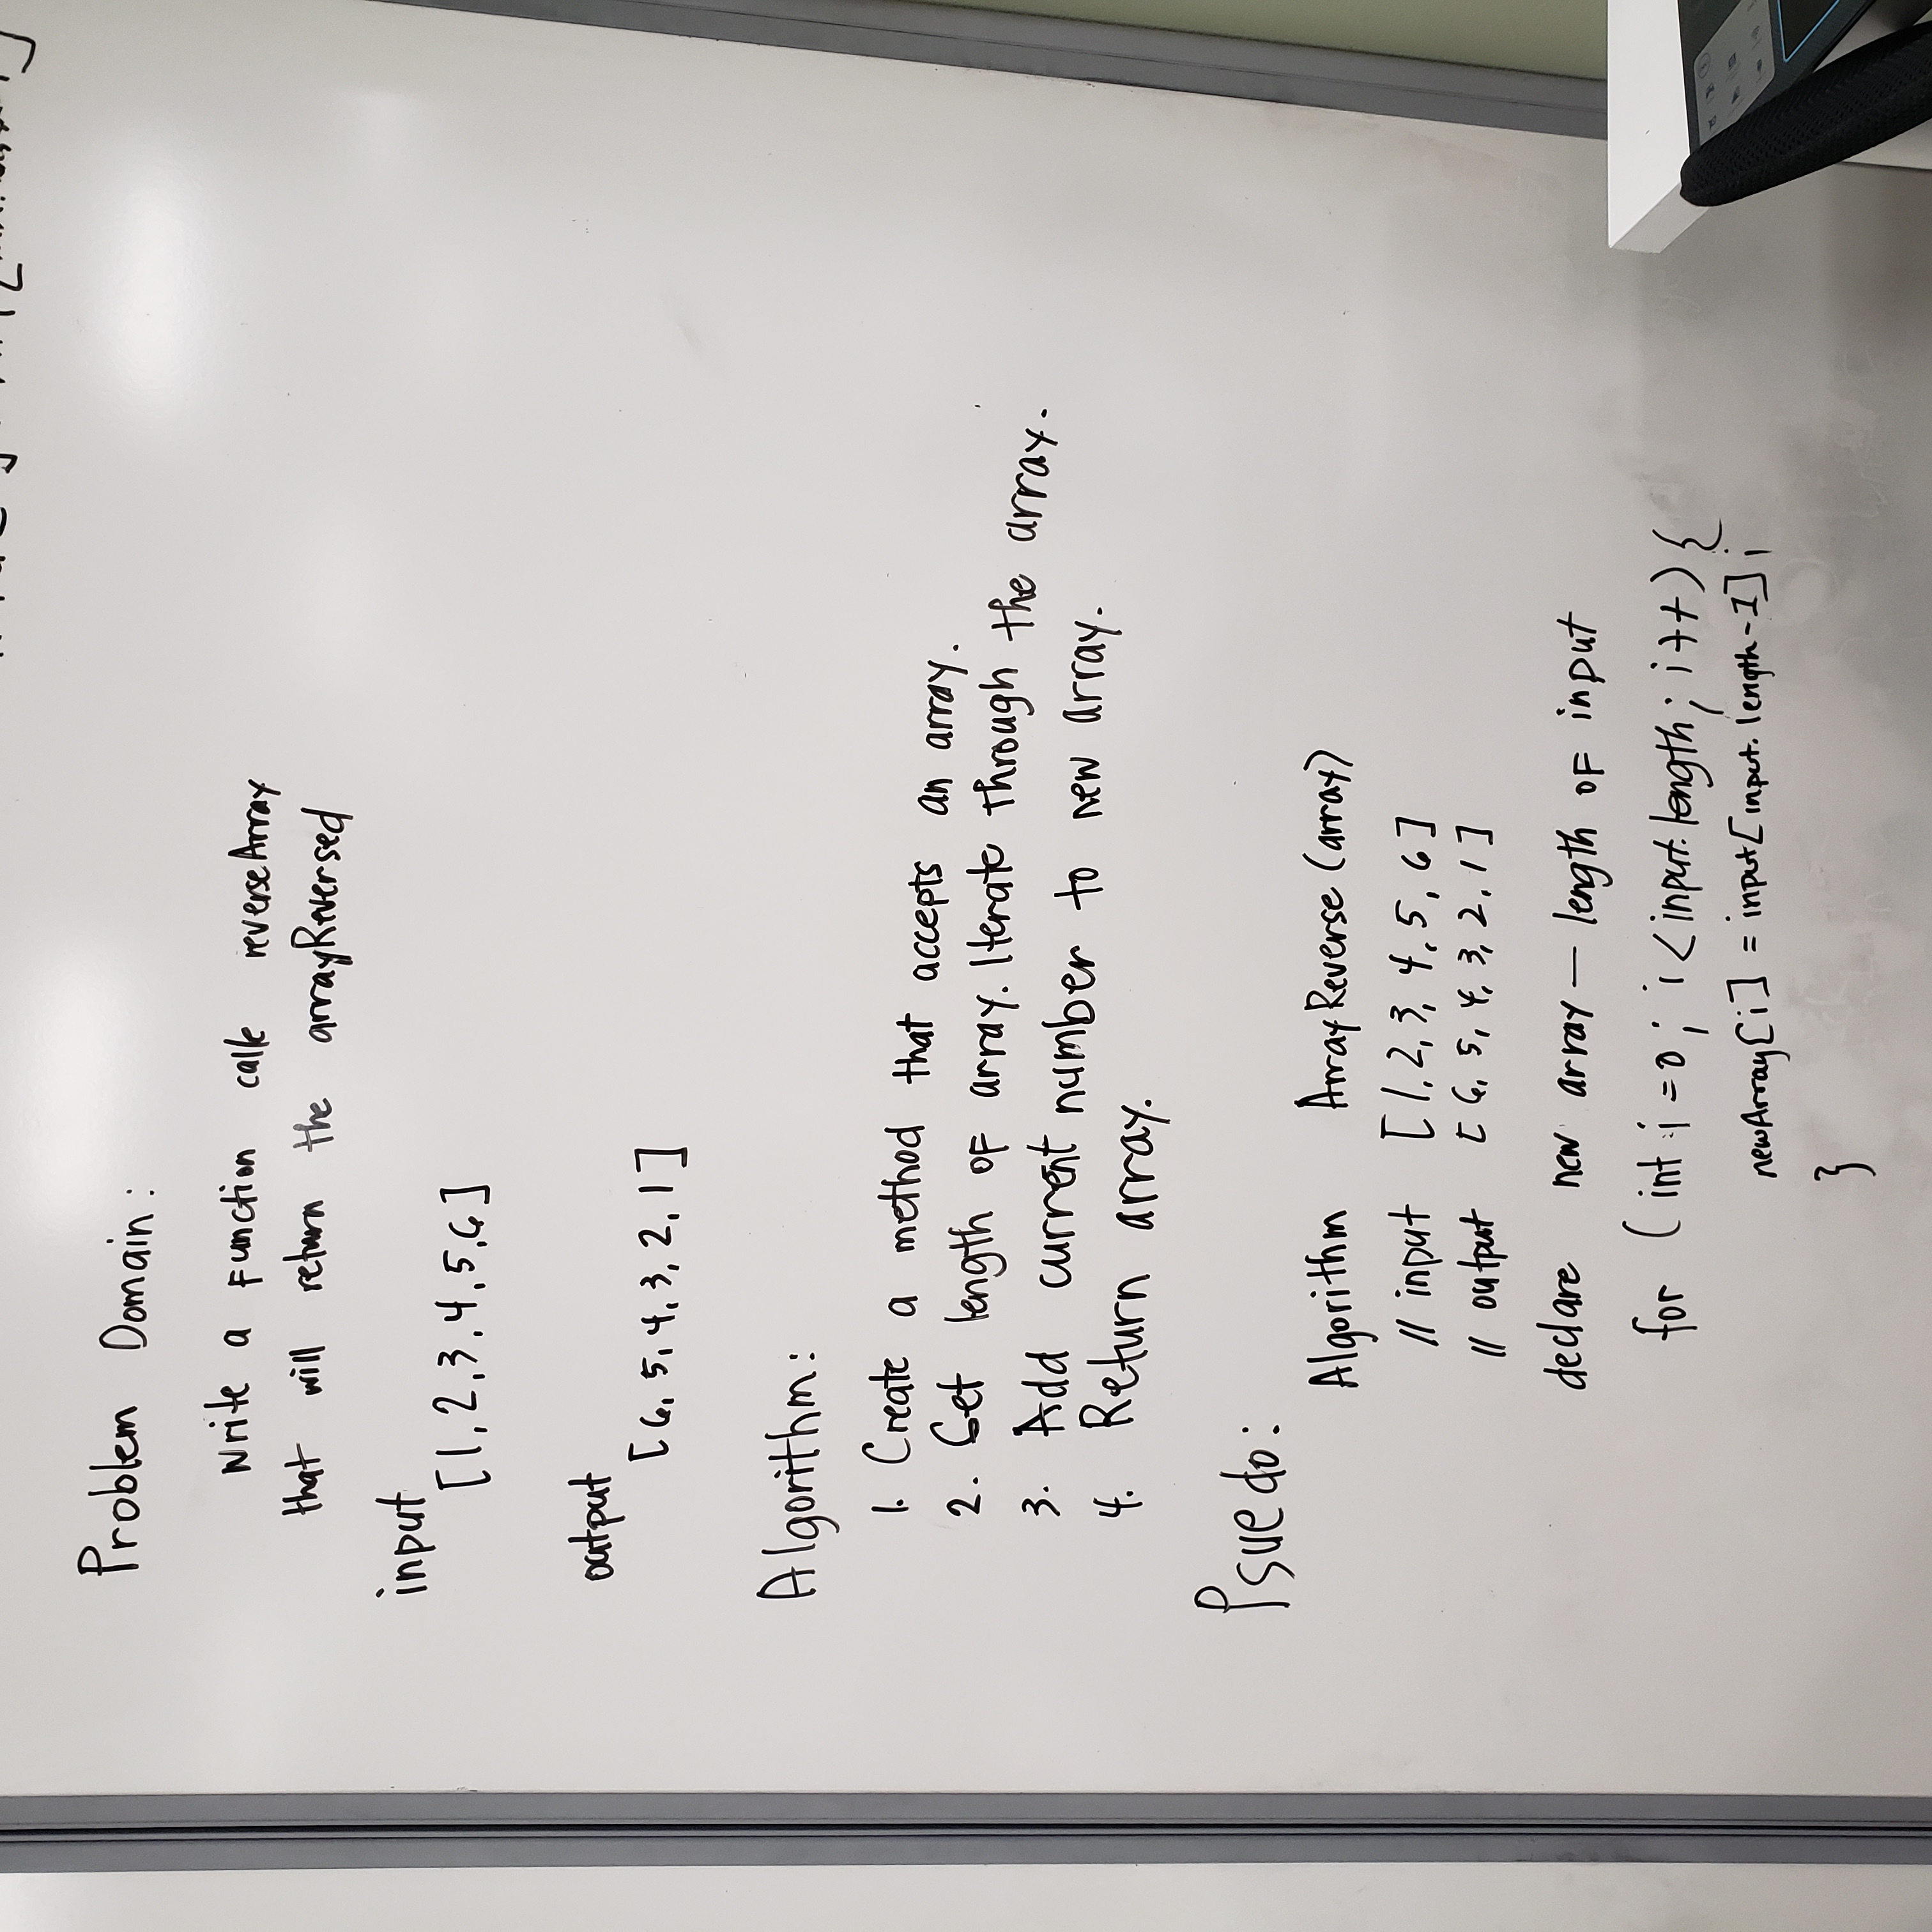 Problem Domain:
Write a Function calle reverseArray
that will return the arrayReversed
input
[1,2,3,4,5,6]
output
[6,5,4,3,2,1]
Algorithm:
1. Create a method that accepts an array.
2. Get length OF array. Iterate through the array.
3. Add current number to new array.
4. Return array.
Psuedo:
Algorithm ArrayReverse (array)
// input [1,2,3,4,5,6]
// output [6,5,4,3,2,1]
declare new array — length OF input
for (int i=0; i<input.length; i++){
newArray[i] = input[input.length-1];
}